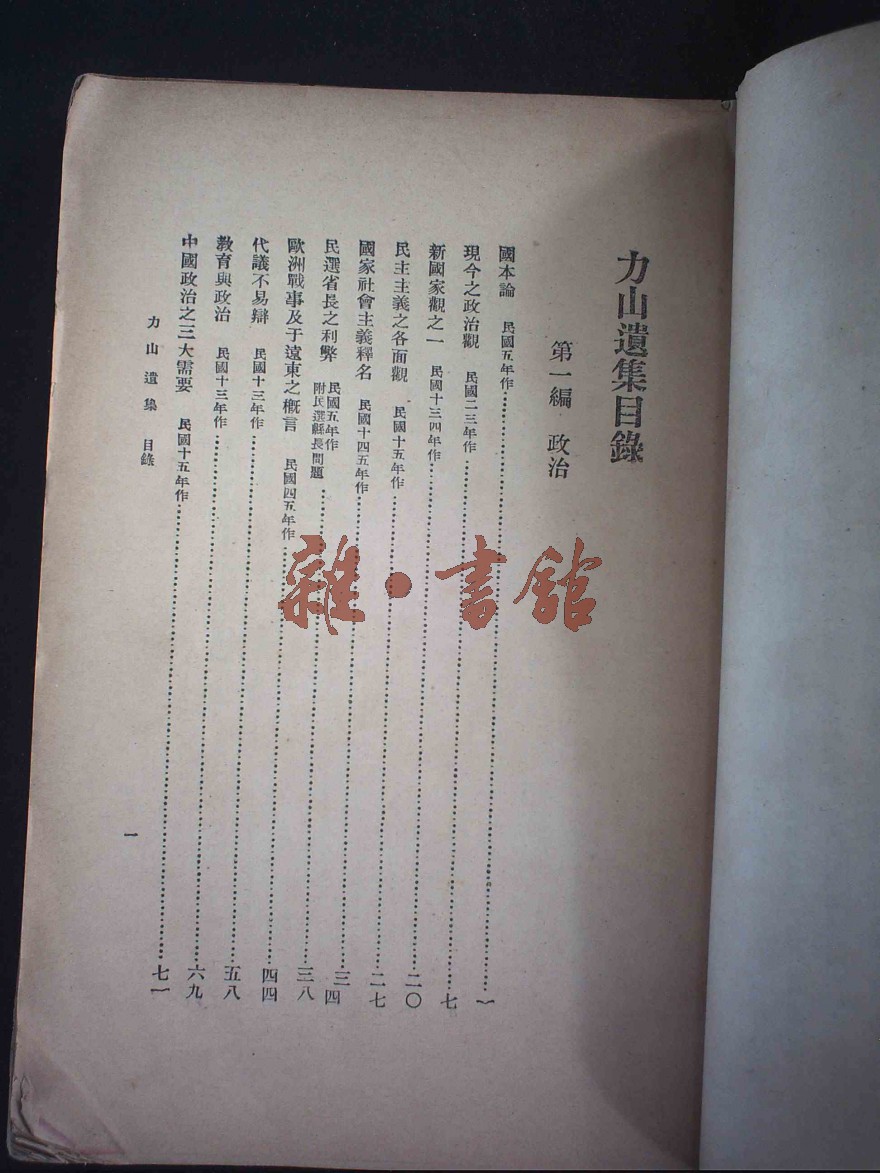 力山遺集目錄
第一編 政治
國本論 民國五年作……一
現今之政治觀 民國二三年作……七
新國家觀之一 民國十三四年作……二〇
民主主義之各面觀 民國十五年作……二七
國家社會主義釋名 民國十四五年作……三四
民選省長之利弊 民國五年作 附民選縣長問題……三八
歐洲戰事及于遠東之概言 民國四五年作……四四
代議不易辯 民國十三年作……五八
教育與政治 民國十三年作……六九
中國政治之三大需要 民國十五年作……七一
力山遺集 目錄
一
雜·書館